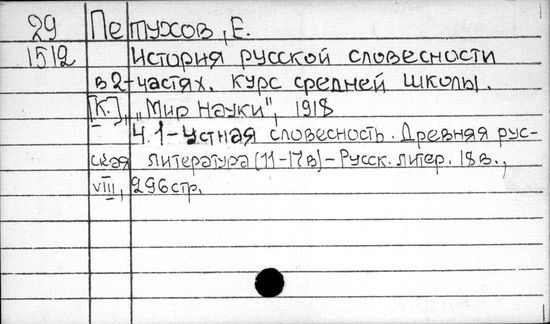 29 Петухов, Е.
1512 История русской словесности
в 2-частях. Курс средней школы.
[К.], „Мир науки", 1918
Ч.1-Устная словесность. Древняя рус-
ская литература (11-17 в) - Русск. литер. 18 в.,
VIII, 296 стр.